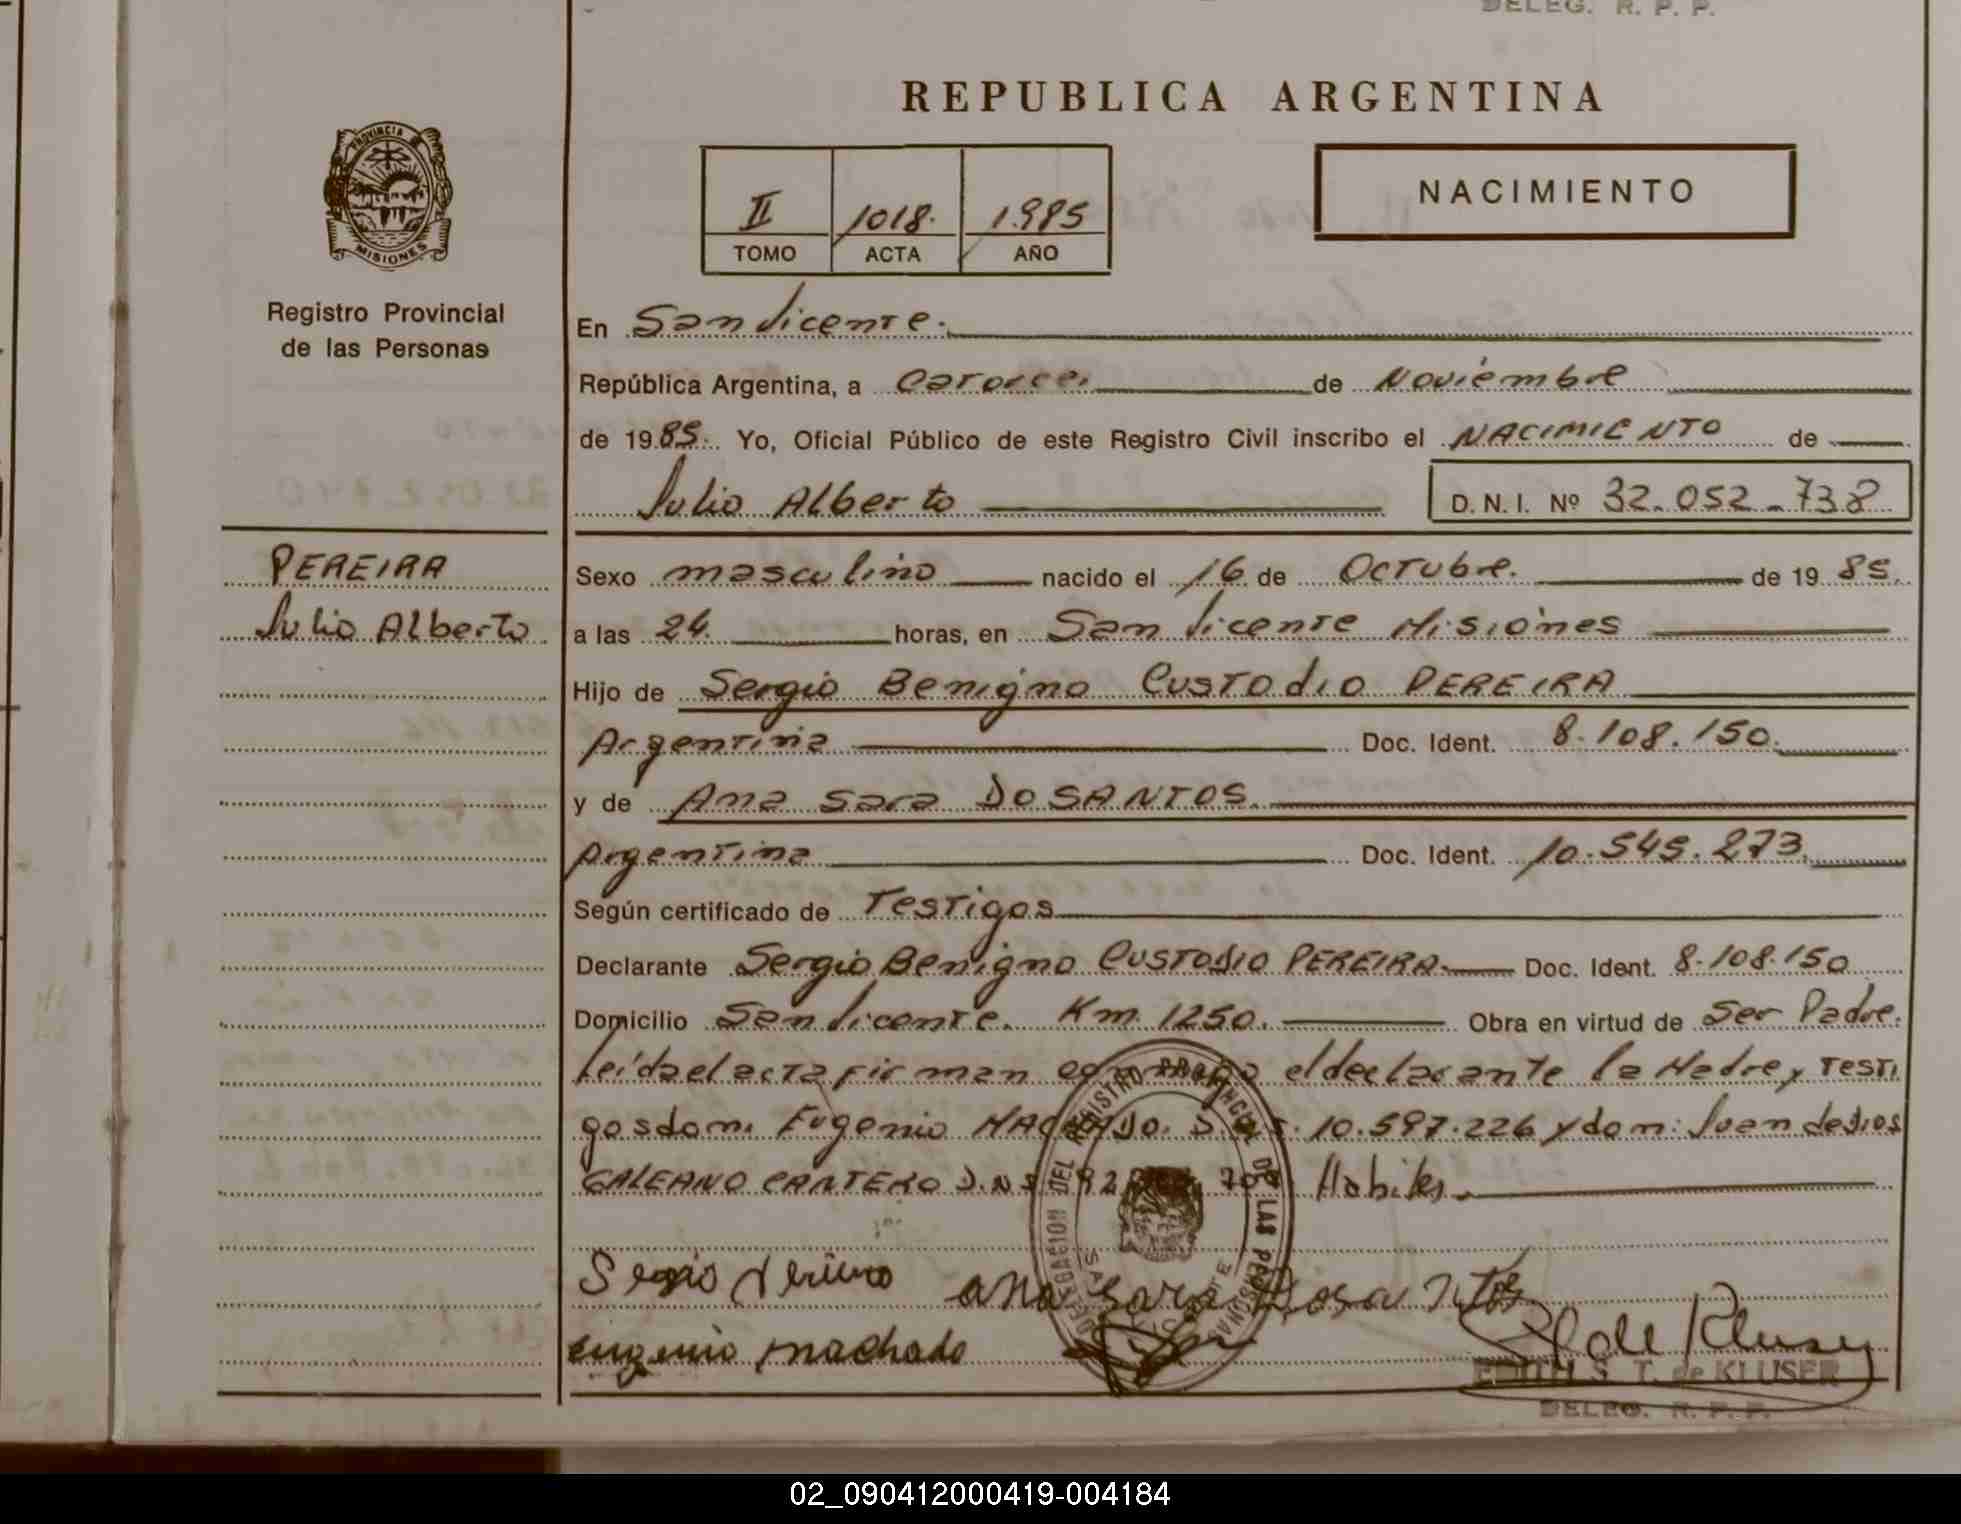 DELEG. R. P. P.
REPUBLICA ARGENTINA
PROVINCIA
MISIONES
II 1018. 1.985
TOMO ACTA AÑO
NACIMIENTO
Registro Provincial
de las Personas
En San Vicente.
República Argentina, a Catorce. de Noviembre
de 1985. Yo, Oficial Público de este Registro Civil inscribo el NACIMIENTO de
Julio Alberto D. N. I. Nº 32.052.738
PEREIRA
Julio Alberto
Sexo masculino nacido el 16 de Octubre. de 1985.
a las 24. horas, en San Vicente Misiones
Hijo de Sergio Benigno CUSTODIO PEREIRA
Argentina Doc. Ident. 8.108.150.
y de Ana Sara DOSANTOS.
Argentina Doc. Ident. 10.545.273.
Según certificado de Testigos
Declarante Sergio Benigno CUSTODIO PEREIRA. Doc. Ident. 8.108.150
Domicilio San Vicente. Km. 1250. Obra en virtud de Ser Padre.
leída el acta firman el declarante la Madre y Testi
gos dom. Eugenio 10.597.226 y dom: Juan de Dios
GALEANO CANTERO D.N.I Habiles.
DELEGACION DEL REGISTRO PROVINCIAL DE LAS PERSONAS
SAN VICENTE
Sergio Pereira Ana Sara Dosantos
eugenio machado
E. de Kluser
EDITH S. T. de KLUSER
DELEG. R. P. P.
02_090412000419-004184